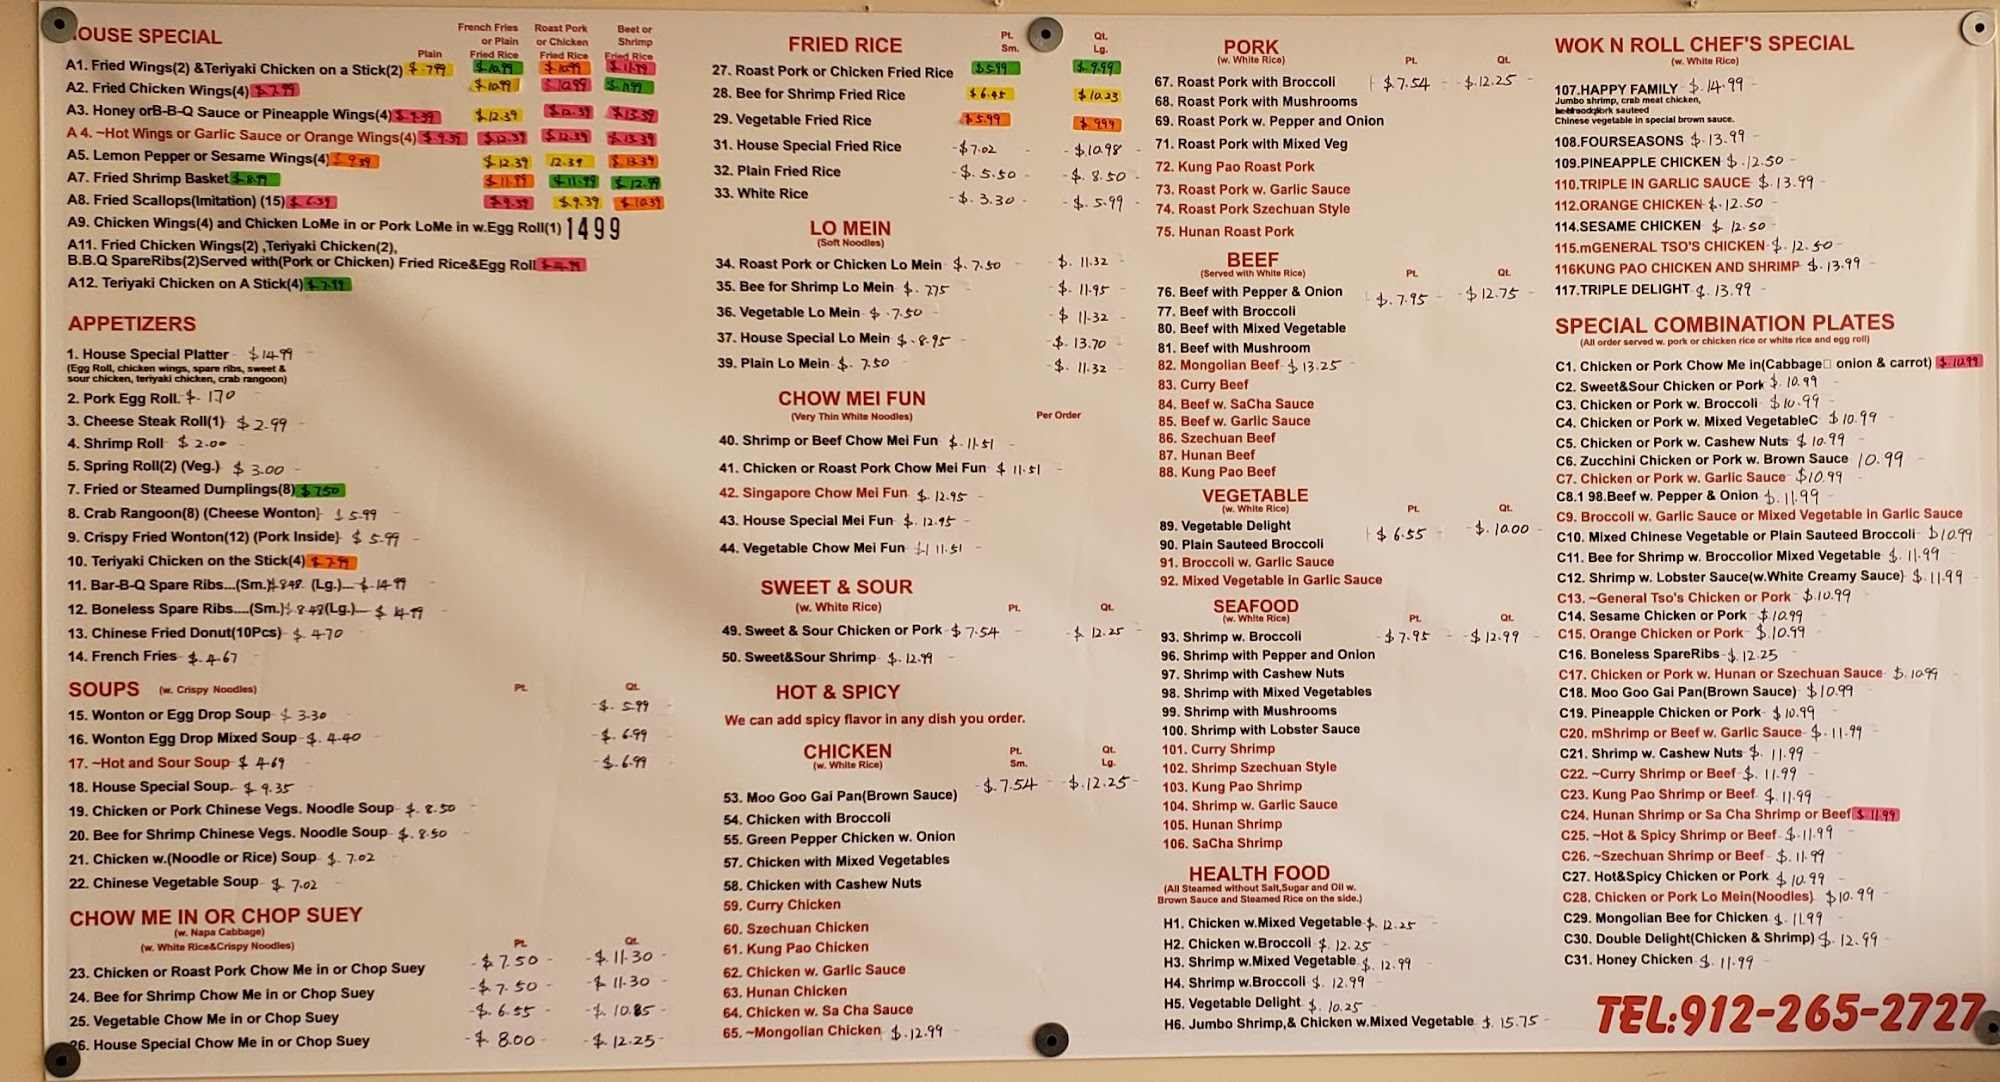 HOUSE SPECIAL
French Fries Roast Pork Beet or
or Plain or Chicken Shrimp
Plain Fried Rice Fried Rice Fried Rice
A1. Fried Wings(2) &Teriyaki Chicken on a Stick(2) $7.99 $10.99 $10.99 $11.99
A2. Fried Chicken Wings(4) $7.99 $10.99 $10.99 $11.99
A3. Honey orB-B-Q Sauce or Pineapple Wings(4) $9.39 $12.39 $12.39 $13.39
A 4. ~Hot Wings or Garlic Sauce or Orange Wings(4) $9.39 $12.39 $12.39 $13.39
A5. Lemon Pepper or Sesame Wings(4) $9.39 $12.39 12.39 $13.39
A7. Fried Shrimp Basket $8.99 $11.99 $11.99 $12.99
A8. Fried Scallops(Imitation) (15) $6.39 $9.39 $9.39 $10.39
A9. Chicken Wings(4) and Chicken LoMe in or Pork LoMe in w.Egg Roll(1) 1499
A11. Fried Chicken Wings(2) ,Teriyaki Chicken(2),
B.B.Q SpareRibs(2)Served with(Pork or Chicken) Fried Rice&Egg Roll
A12. Teriyaki Chicken on A Stick(4) $7.99
APPETIZERS
1. House Special Platter $14.99
(Egg Roll, chicken wings, spare ribs, sweet &
sour chicken, teriyaki chicken, crab rangoon)
2. Pork Egg Roll. $1.70
3. Cheese Steak Roll(1) $2.99
4. Shrimp Roll $2.00
5. Spring Roll(2) (Veg.) $3.00
7. Fried or Steamed Dumplings(8) $7.50
8. Crab Rangoon(8) (Cheese Wonton) $5.99
9. Crispy Fried Wonton(12) (Pork Inside) $5.99
10. Teriyaki Chicken on the Stick(4) $7.99
11. Bar-B-Q Spare Ribs...(Sm.)$8.48 (Lg.)... $14.99
12. Boneless Spare Ribs....(Sm.)$8.48(Lg.)... $14.99
13. Chinese Fried Donut(10Pcs) $4.70
14. French Fries $4.67
SOUPS (w. Crispy Noodles) Pt. Qt.
15. Wonton or Egg Drop Soup $3.30 $5.99
16. Wonton Egg Drop Mixed Soup $4.40 $6.99
17. ~Hot and Sour Soup $4.69 $6.99
18. House Special Soup. $9.35
19. Chicken or Pork Chinese Vegs. Noodle Soup $8.50
20. Bee for Shrimp Chinese Vegs. Noodle Soup $8.50
21. Chicken w.(Noodle or Rice) Soup $7.02
22. Chinese Vegetable Soup $7.02
CHOW ME IN OR CHOP SUEY
(w. Napa Cabbage)
(w. White Rice&Crispy Noodles) Pt. Qt.
23. Chicken or Roast Pork Chow Me in or Chop Suey $7.50 $11.30
24. Bee for Shrimp Chow Me in or Chop Suey $7.50 $11.30
25. Vegetable Chow Me in or Chop Suey $6.55 $10.85
26. House Special Chow Me in or Chop Suey $8.00 $12.25
FRIED RICE Pt. Qt.
Sm. Lg.
27. Roast Pork or Chicken Fried Rice $5.99 $9.99
28. Bee for Shrimp Fried Rice $6.45 $10.23
29. Vegetable Fried Rice $5.99 $9.99
31. House Special Fried Rice $7.02 $10.98
32. Plain Fried Rice $5.50 $8.50
33. White Rice $3.30 $5.99
LO MEIN
(Soft Noodles)
34. Roast Pork or Chicken Lo Mein $7.50 $11.32
35. Bee for Shrimp Lo Mein $7.75 $11.95
36. Vegetable Lo Mein $7.50 $11.32
37. House Special Lo Mein $8.95 $13.70
39. Plain Lo Mein $7.50 $11.32
CHOW MEI FUN
(Very Thin White Noodles) Per Order
40. Shrimp or Beef Chow Mei Fun $11.51
41. Chicken or Roast Pork Chow Mei Fun $11.51
42. Singapore Chow Mei Fun $12.95
43. House Special Mei Fun $12.95
44. Vegetable Chow Mei Fun $11.51
SWEET & SOUR
(w. White Rice) Pt. Qt.
49. Sweet & Sour Chicken or Pork $7.54 $12.25
50. Sweet&Sour Shrimp $12.99
HOT & SPICY
We can add spicy flavor in any dish you order.
CHICKEN Pt. Qt.
(w. White Rice) Sm. Lg.
53. Moo Goo Gai Pan(Brown Sauce) $7.54 $12.25
54. Chicken with Broccoli
55. Green Pepper Chicken w. Onion
57. Chicken with Mixed Vegetables
58. Chicken with Cashew Nuts
59. Curry Chicken
60. Szechuan Chicken
61. Kung Pao Chicken
62. Chicken w. Garlic Sauce
63. Hunan Chicken
64. Chicken w. Sa Cha Sauce
65. ~Mongolian Chicken $12.99
PORK
(w. White Rice) Pt. Qt.
67. Roast Pork with Broccoli $7.54 $12.25
68. Roast Pork with Mushrooms
69. Roast Pork w. Pepper and Onion
71. Roast Pork with Mixed Veg
72. Kung Pao Roast Pork
73. Roast Pork w. Garlic Sauce
74. Roast Pork Szechuan Style
75. Hunan Roast Pork
BEEF
(Served with White Rice) Pt. Qt.
76. Beef with Pepper & Onion $7.95 $12.75
77. Beef with Broccoli
80. Beef with Mixed Vegetable
81. Beef with Mushroom
82. Mongolian Beef $13.25
83. Curry Beef
84. Beef w. SaCha Sauce
85. Beef w. Garlic Sauce
86. Szechuan Beef
87. Hunan Beef
88. Kung Pao Beef
VEGETABLE
(w. White Rice) Pt. Qt.
89. Vegetable Delight $6.55 $10.00
90. Plain Sauteed Broccoli
91. Broccoli w. Garlic Sauce
92. Mixed Vegetable in Garlic Sauce
SEAFOOD
(w. White Rice) Pt. Qt.
93. Shrimp w. Broccoli $7.95 $12.99
96. Shrimp with Pepper and Onion
97. Shrimp with Cashew Nuts
98. Shrimp with Mixed Vegetables
99. Shrimp with Mushrooms
100. Shrimp with Lobster Sauce
101. Curry Shrimp
102. Shrimp Szechuan Style
103. Kung Pao Shrimp
104. Shrimp w. Garlic Sauce
105. Hunan Shrimp
106. SaCha Shrimp
HEALTH FOOD
(All Steamed without Salt,Sugar and Oil w.
Brown Sauce and Steamed Rice on the side.)
H1. Chicken w.Mixed Vegetable $12.25
H2. Chicken w.Broccoli $12.25
H3. Shrimp w.Mixed Vegetable $12.99
H4. Shrimp w.Broccoli $12.99
H5. Vegetable Delight $10.25
H6. Jumbo Shrimp,& Chicken w.Mixed Vegetable $15.75
WOK N ROLL CHEF'S SPECIAL
(w. White Rice)
107.HAPPY FAMILY $14.99
Jumbo shrimp, crab meat chicken,
sauteed
Chinese vegetable in special brown sauce.
108.FOURSEASONS $13.99
109.PINEAPPLE CHICKEN $12.50
110.TRIPLE IN GARLIC SAUCE $13.99
112.ORANGE CHICKEN $12.50
114.SESAME CHICKEN $12.50
115.mGENERAL TSO'S CHICKEN $12.50
116KUNG PAO CHICKEN AND SHRIMP $13.99
117.TRIPLE DELIGHT $13.99
SPECIAL COMBINATION PLATES
(All order served w. pork or chicken rice or white rice and egg roll)
C1. Chicken or Pork Chow Me in(Cabbage□ onion & carrot) $10.99
C2. Sweet&Sour Chicken or Pork $10.99
C3. Chicken or Pork w. Broccoli $10.99
C4. Chicken or Pork w. Mixed VegetableC $10.99
C5. Chicken or Pork w. Cashew Nuts $10.99
C6. Zucchini Chicken or Pork w. Brown Sauce 10.99
C7. Chicken or Pork w. Garlic Sauce $10.99
C8.1 98.Beef w. Pepper & Onion $11.99
C9. Broccoli w. Garlic Sauce or Mixed Vegetable in Garlic Sauce
C10. Mixed Chinese Vegetable or Plain Sauteed Broccoli $10.99
C11. Bee for Shrimp w. Broccolior Mixed Vegetable $11.99
C12. Shrimp w. Lobster Sauce(w.White Creamy Sauce) $11.99
C13. ~General Tso's Chicken or Pork $10.99
C14. Sesame Chicken or Pork $10.99
C15. Orange Chicken or Pork $10.99
C16. Boneless SpareRibs $12.25
C17. Chicken or Pork w. Hunan or Szechuan Sauce $10.99
C18. Moo Goo Gai Pan(Brown Sauce) $10.99
C19. Pineapple Chicken or Pork $10.99
C20. mShrimp or Beef w. Garlic Sauce $11.99
C21. Shrimp w. Cashew Nuts $11.99
C22. ~Curry Shrimp or Beef $11.99
C23. Kung Pao Shrimp or Beef $11.99
C24. Hunan Shrimp or Sa Cha Shrimp or Beef $11.99
C25. ~Hot & Spicy Shrimp or Beef $11.99
C26. ~Szechuan Shrimp or Beef $11.99
C27. Hot&Spicy Chicken or Pork $10.99
C28. Chicken or Pork Lo Mein(Noodles) $10.99
C29. Mongolian Bee for Chicken $11.99
C30. Double Delight(Chicken & Shrimp) $12.99
C31. Honey Chicken $11.99
TEL:912-265-2727